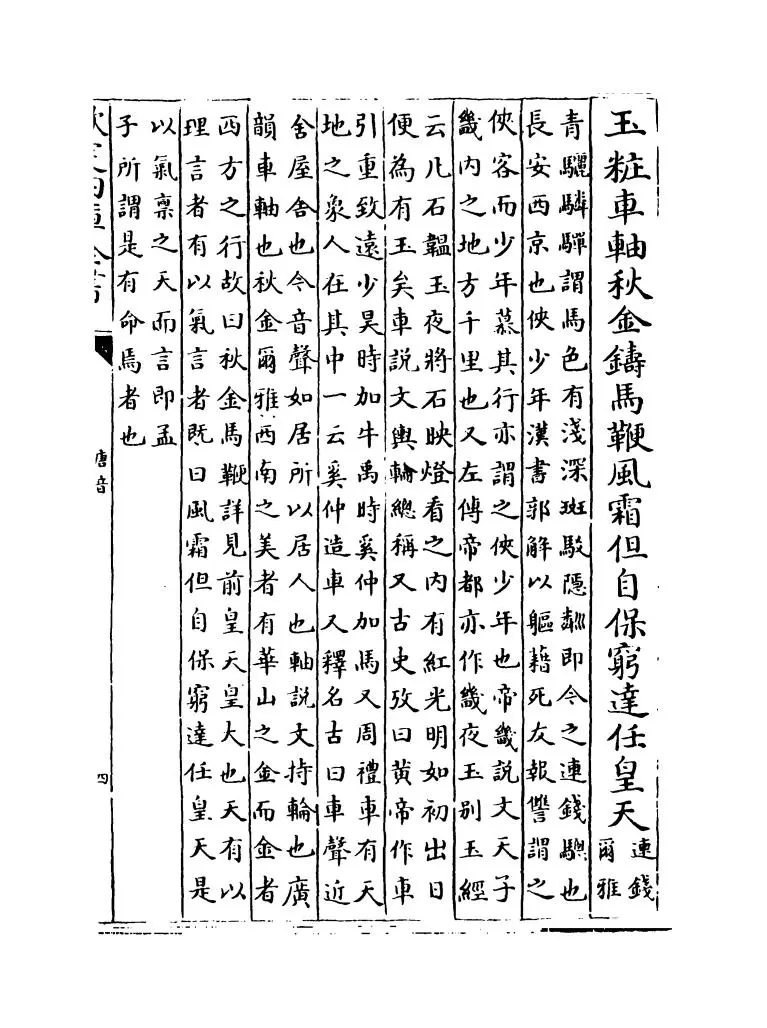 玉粧車軸秋金鑄馬鞭風霜但自保窮達任皇天
連錢
爾雅
青驪驎驒謂馬色有淺深斑駁隱粼即今之連錢驄也
長安西京也俠少年漢書郭解以軀藉死友報讐謂之
俠客而少年慕其行亦謂之俠少年也帝畿說文天子
畿内之地方千里也又左傳帝都亦作畿夜玉别玉經
云凡石韞玉夜將石映燈看之内有紅光明如初出日
便為有玉矣車説文輿輪總稱又古史攷曰黄帝作車
引重致遠少昊時加牛禹時奚仲加馬又周禮車有天
地之象人在其中一云奚仲造車又釋名古曰車聲近
舍屋舍也今音聲如居所以居人也軸説文持輪也廣
韻車軸也秋金爾雅西南之美者有華山之金而金者
西方之行故曰秋金馬鞭詳見前皇天皇大也天有以
理言者有以氣言者既曰風霜但自保窮達任皇天是
以氣禀之天而言即孟
子所謂是有命焉者也
唐音
四